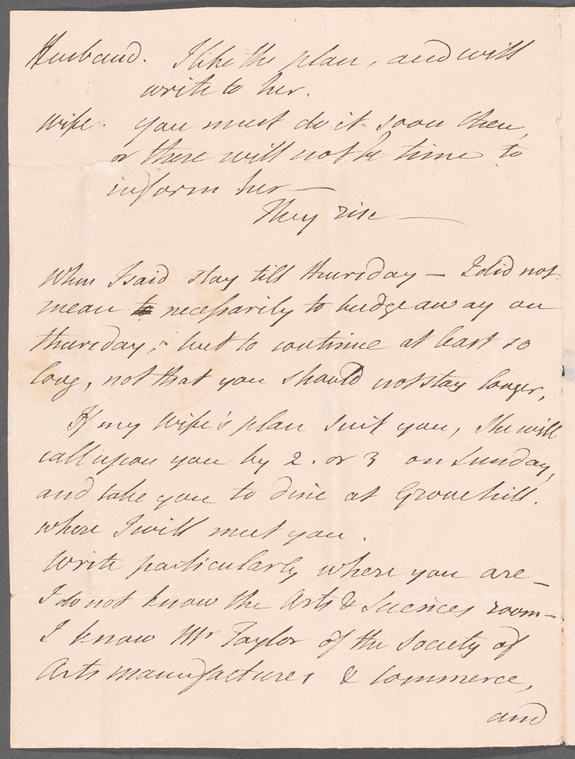 Husband. I like the plan, and will
write to her.
Wife. you must do it soon then,
or there will not be time to
inform her —
They rise —
When I said stay till thursday — I did not
mean to necessarily to budge away on
thursday; but to continue at least so
long, not that you should not stay longer,
If my Wife's plan suit you, she will
call upon you by 2. or 3 on Sunday,
and take you to dine at Grovehill.
where I will meet you.
Write particularly where you are —
I do not know the Arts & Sciences room —
I know Mr Taylor of the Society of
Arts manufactures & Commerce,
and